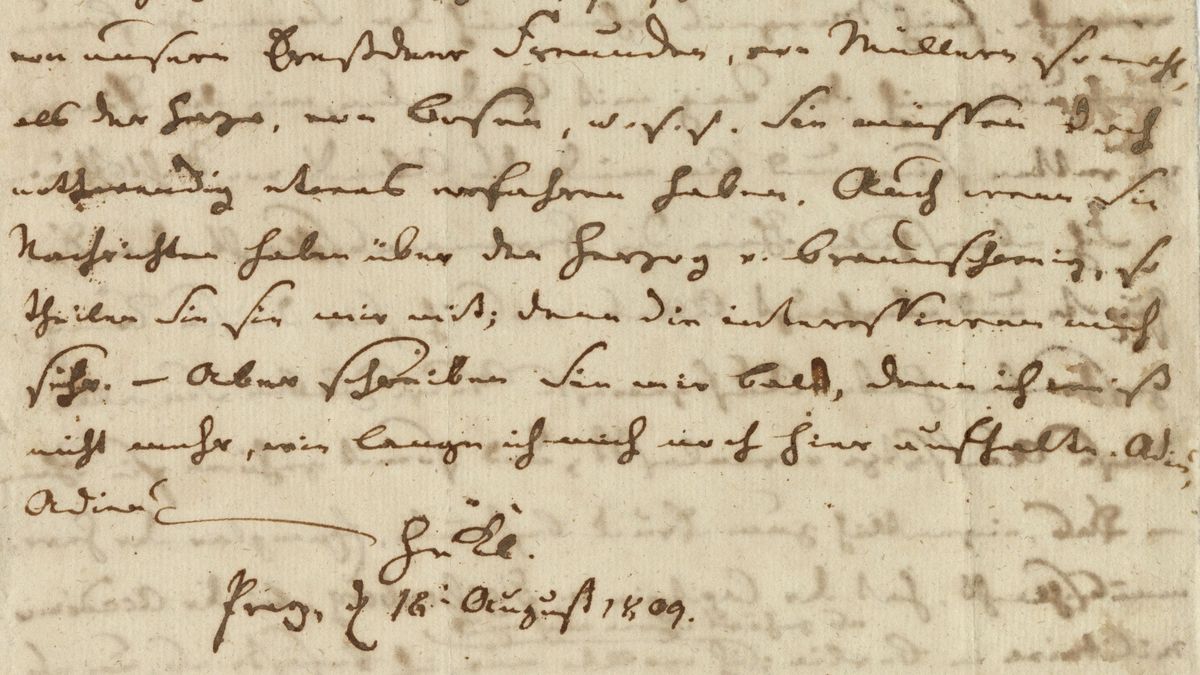 von unsern Dresdener Freunden, von Müllern so wohl,
als der Haza, von Bosen, u. s. f. Sie müssen doch
nothwendig etwas erfahren haben. Auch wenn Sie
Nachrichten haben über den Herzog v. Braunschweig, so
theilen Sie sie mir mit; denn die interessieren mich
sehr. – Aber schreiben Sie mir bald, denn ich weiß
nicht mehr, wie lange ich mich noch hier aufhalte. Adieu,
Adieu
Prag, d 18. August 1809.